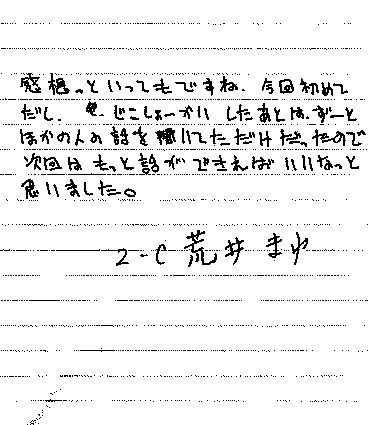 感想っといってもですね、今回初めて
だし、じこしょーかいしたあとは、ずーっと
ほかの人の話を聴いてただけだったので
次回はもっと話ができればいいなっと
思いました。
2-C 荒井まゆ